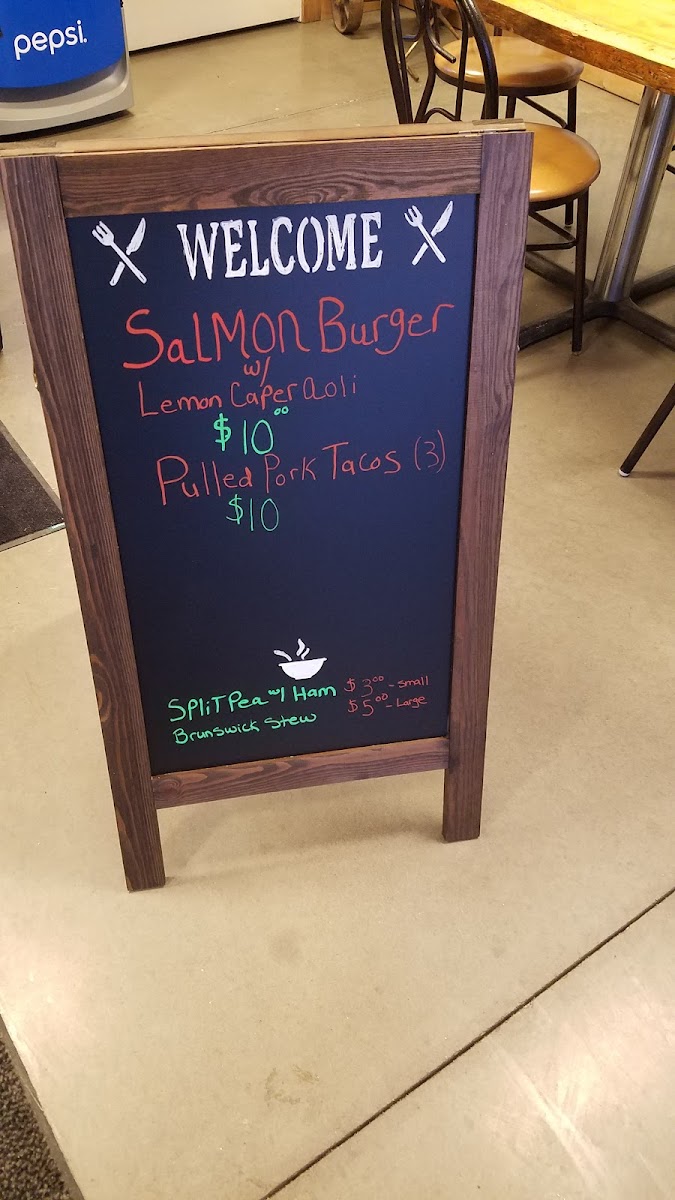 pepsi.
WELCOME
SalMON Burger
w/
Lemon Caper aoli
$10.00
Pulled Pork Tacos (3)
$10
SPLiT Pea w/ Ham $3.00 - small
Brunswick Stew $5.00 - Large